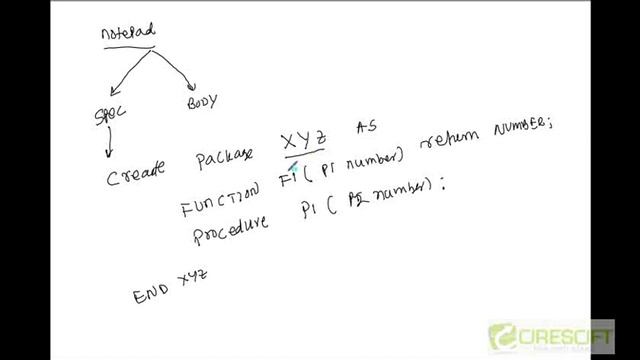 notepad
SPEC BODY
Create Package XYZ AS
FUNCTION F1 ( P1 number) return NUMBER;
Procedure P1 ( P2 number) ;
END XYZ
CIRESCIFT